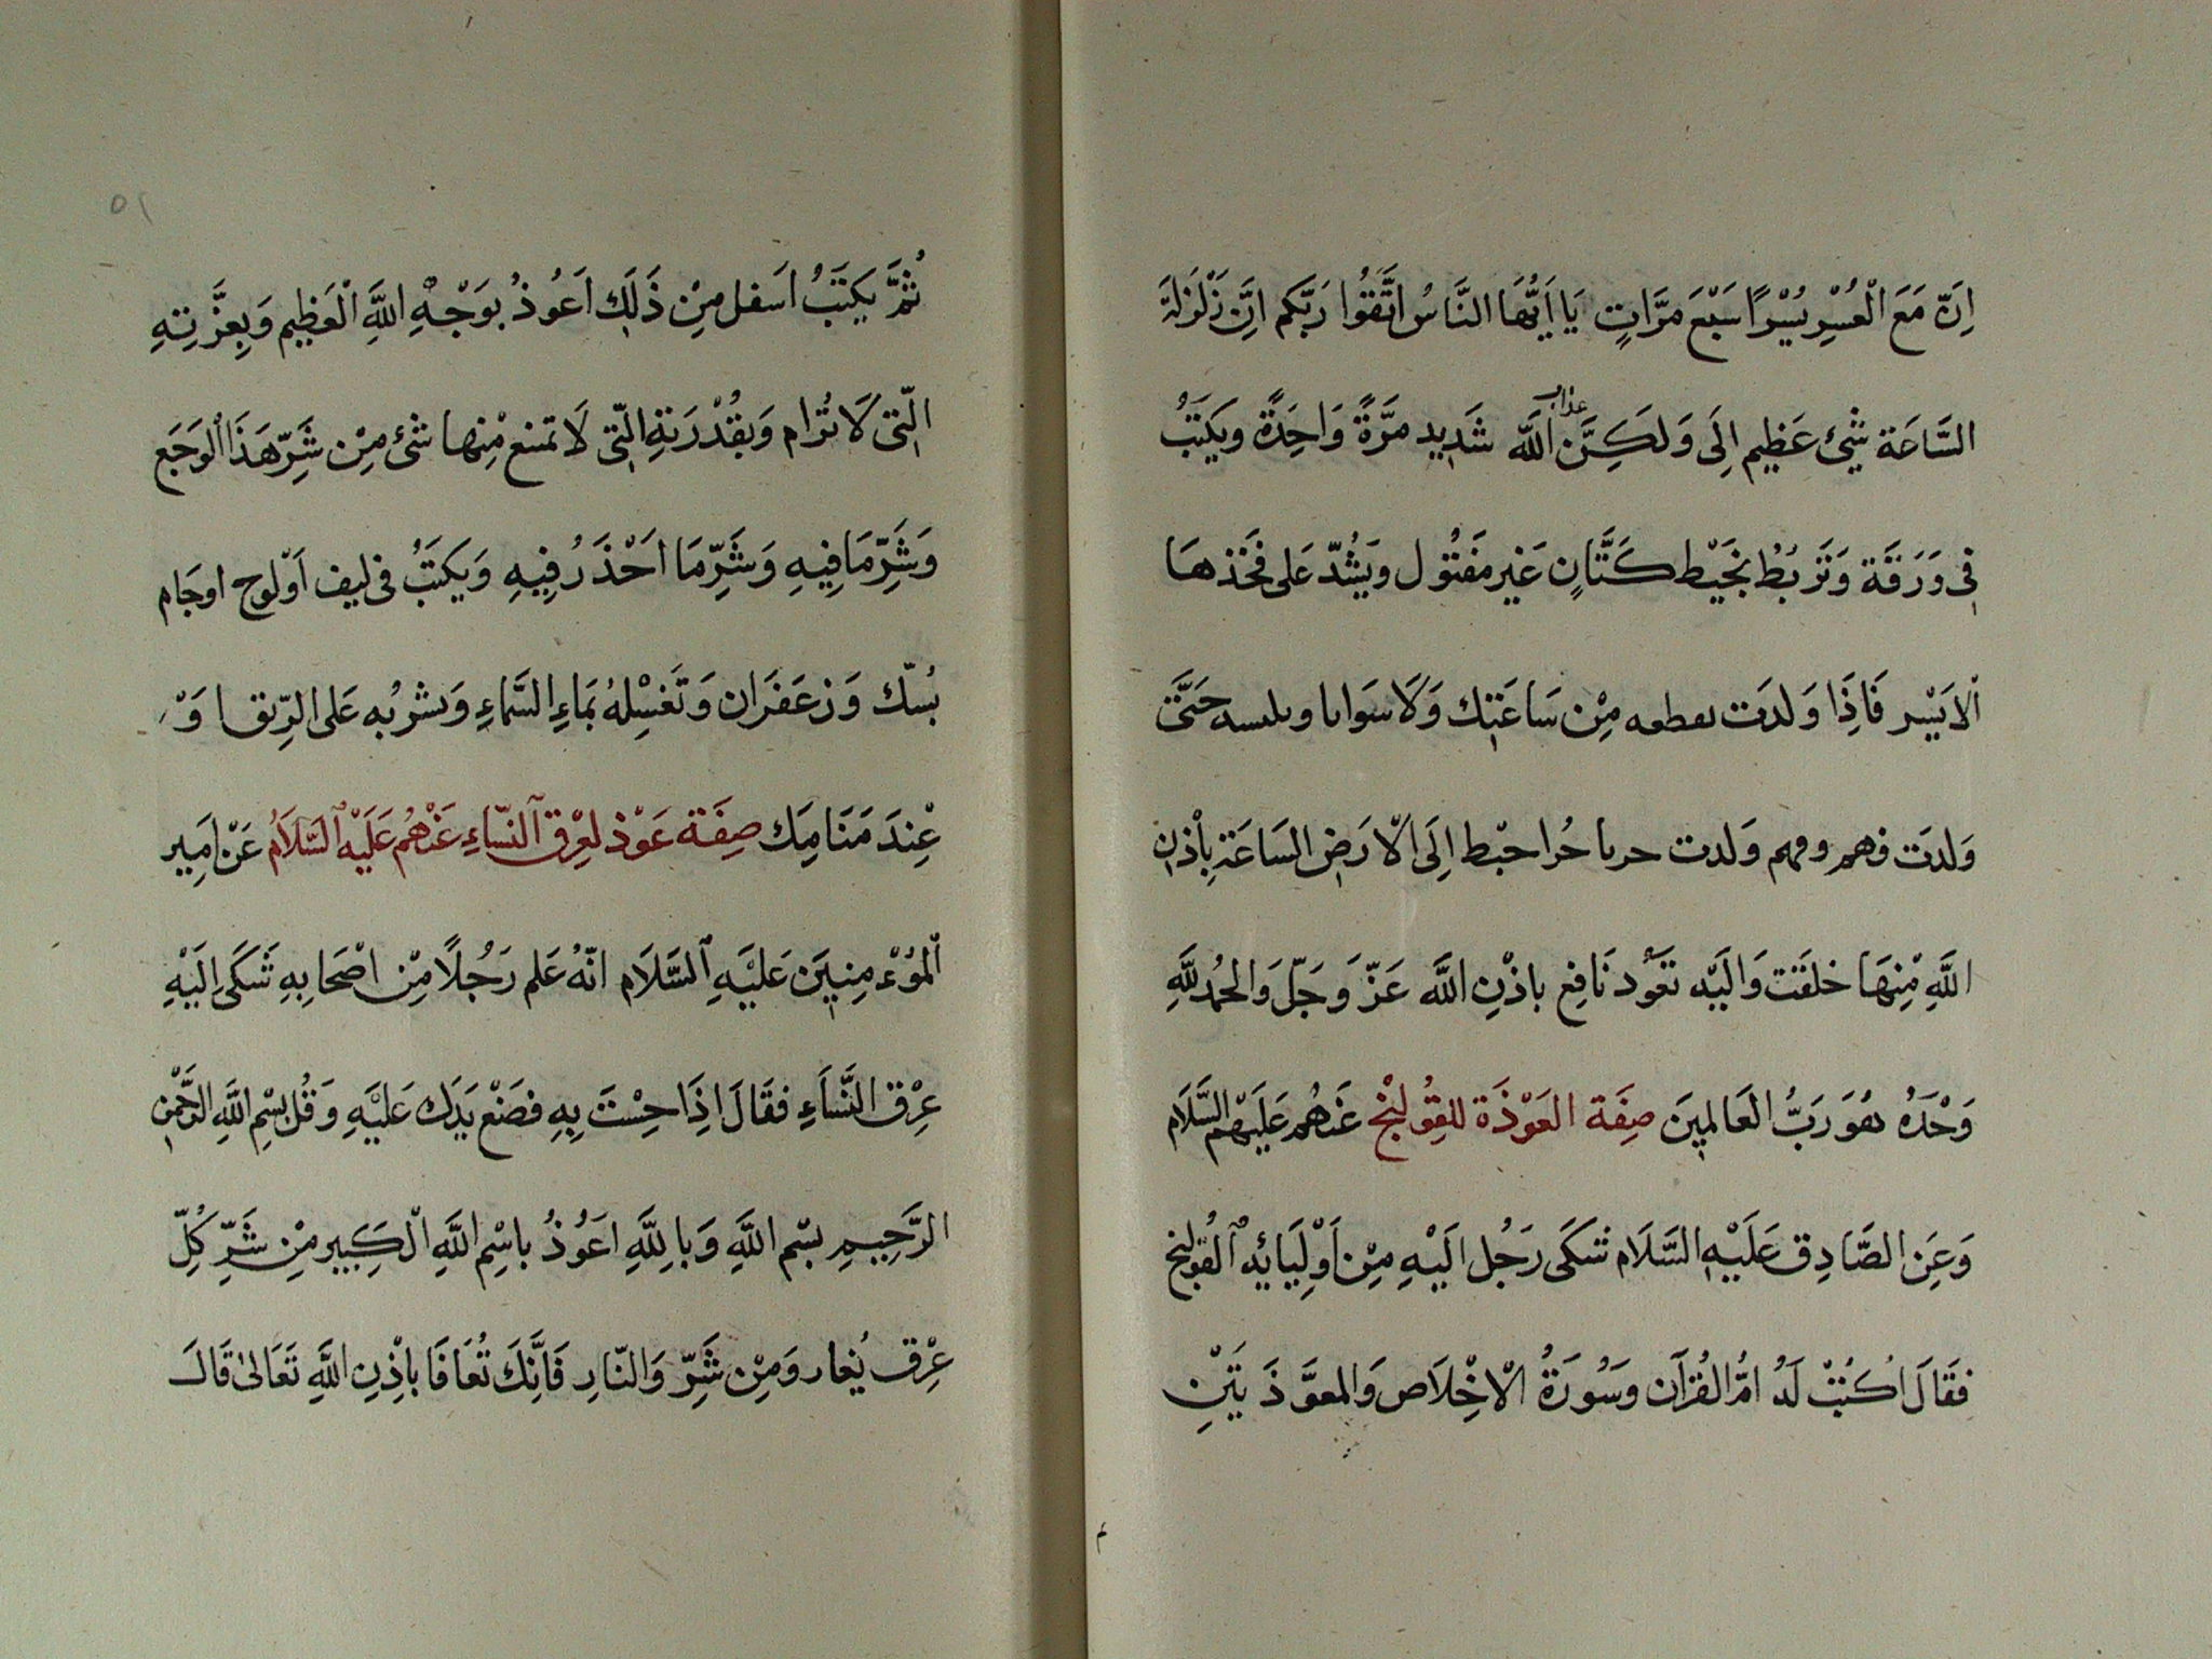 اِنَّ مَعَ الْعُسْرِ يُسْرًا سَبْعَ مَرَّاتٍ يَا اَيُّهَا النَّاسُ اتَّقُوا رَبَّكم اِنَّ زَلْزَلَةَ
السَّاعَة شَئ عَظِيم اِلَى وَلَكِنَّ عذاب اللَّه شَدِيد مَرَّةً وَاحِدَةً ويَكتَبُ
فِى وَرَقَة وَتَرْبُطُ بخَيْط كَتَّانٍ غَير مَفتُول ويَشُدّ عَلى فَخَذهَا
الايَسْر فَاِذَا وَلدَت تقطعه مِنْ سَاعَتِك وَلَا سَوايا حَتَّى
وَلدَت وَلدت اِلَى الْارَضِ السَاعَة بِاْذنِ
اللَّهِ مِنْهَا خلقَت وَالَيْه تَعَوُد نَافِع باذْنِ اللَّه عَزّ وَجَلّ وَالحُمْد للَّهِ
وَحْدَهُ هُوَ رَبُّ العَالمِينَ صِفَة العَوْذَة للقِوُلنْج عَنهُم عَلَيْهم السَّلَام
وَعَنِ الصَّادِق عَلَيْهِ السَّلَام شَكَى رَجُل الَيْهِ مِنْ اَوْلِيَائِه القُولنج
فقَالَ اُكتُبْ لَهُ امُّ القُرآن وَسُورَةُ الْاخِْلَاص وَالمعوَّذَ تَيْنِ
ثُمَّ يَكتَبُ اَسفل مِنْ ذَلِكَ اَعُوذُ بوَجْهِ اللَّهِ الْعَظِيم وَبِعِزَّتِهِ
الّتِى لَا تُرَام وَبقُدْرَتهِ الّتِى لَا تمنع مْنِها شئ مِنْ شَرِّ هَذَا الْوَجَع
وَشَرِّ مَا فِيهِ وَشَرِّ مَا احَْذَرُ فِيهِ وَيَكتَبُ فى ليف اَوْ لوح اوجَام
بُسّك وَزعَفَرَان وَتَغسْلِهُ بَماءِ السَّماءِ وَتشربُه عَلى الرِّيق وَ
عْنِدَ مَنَامِك صِفَة عَوْذ لعِرْق النّسَاءِ عَنْهُم عَلَيْه السَّلَامُ عَنْ اَمِير
الْموُءْمِنِينَ عَليْهِ السَّلَام انّهُ عَلم رَجُلًا مِنْ اصْحَابِهِ شَكَى اِلَيْهِ
عرْق النَّسَاءِ فقَالَ اذَِا حِسْتَ بِهِ فصَنْع يَدَك عَليْهِ وَقُل بسْمِ اللَّهِ الرَّحْمنِ
الرَّحِيمِ بسْم اللَّهِ وَبا للَّهِ اعَوُذُ باسْمِ اللَّهِ الْكَبِيرِ مْنِ شَرِّ كُلّ
عِرْق يُغار وَمِنْ شَرِّ وَالنّارِ فَانَِّكَ تُعَافَا باِْذِنِ اللَّهِ تَعَالىٰ قَالَ